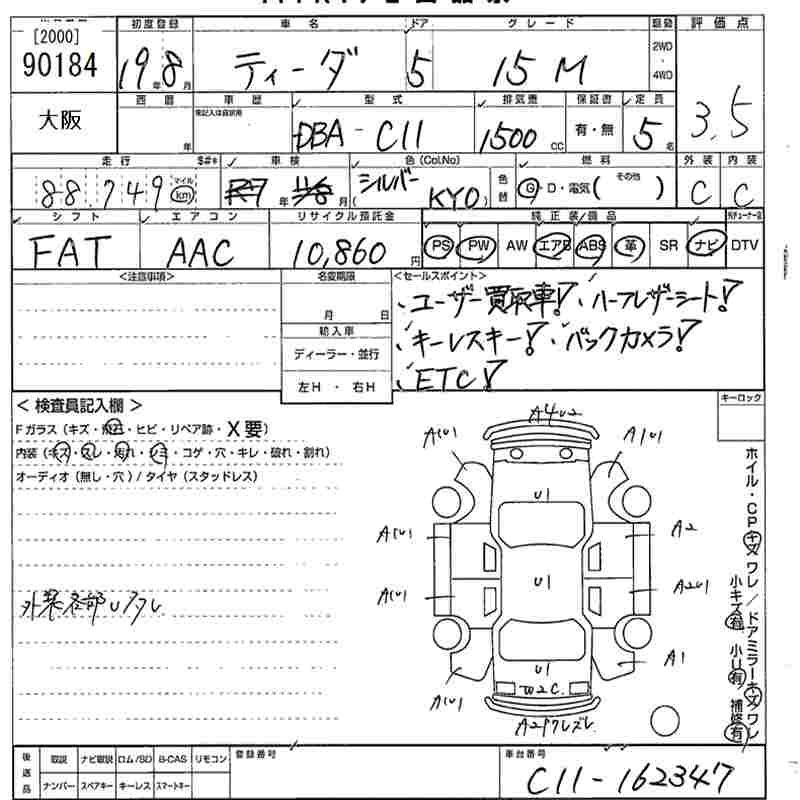 [2000]
90184
大阪
初度登録 車名 ドア グレード 駆動 評価点
19年8月 ティーダ 5 15M 2WD・4WD 3.5
西暦 年 車歴 型式 排気量 保証書 定員
DBA-C11 1500cc 有・無 5名
走行 S#* 車検 色(Col.No) 燃料 外装 内装
88,749 マイル km R7年 8月 シルバー (KY0) 色替 G・D・電気( その他 ) C C
シフト エアコン リサイクル預託金 純正装備品
FAT AAC 10,860円 PS PW AW エアB ABS 革 SR ナビ DTV
<注意事項> 名変期限 <セールスポイント>
月 日
輸入車
ディーラー・並行
左H・右H
ユーザー買取車! ハーフレザーシート!
キーレスキー! バックカメラ!
ETC!
<検査員記入欄> キーロック
Fガラス(キズ・飛石・ヒビ・リペア跡・X要)
内装(キズ・スレ・汚れ・シミ・コゲ・穴・キレ・破れ・割れ)
オーディオ(無し・穴)/タイヤ(スタッドレス)
外装各部Uアタレ
A4U2
A1U1 A1U1
U1
A1U1 A2
A1U1 U1 A2U1
U1
A1U1 W2C A1
A2 ワレズレ
ホイル・CPキズワレ/ドアミラーキズワレ
小キズ有 小U有 補修有
後送品 取説 ナビ取説 ロム/SD B-CAS リモコン 登録番号 車台番号
ナンバー スペアキー キーレス スマートキー C11-162347